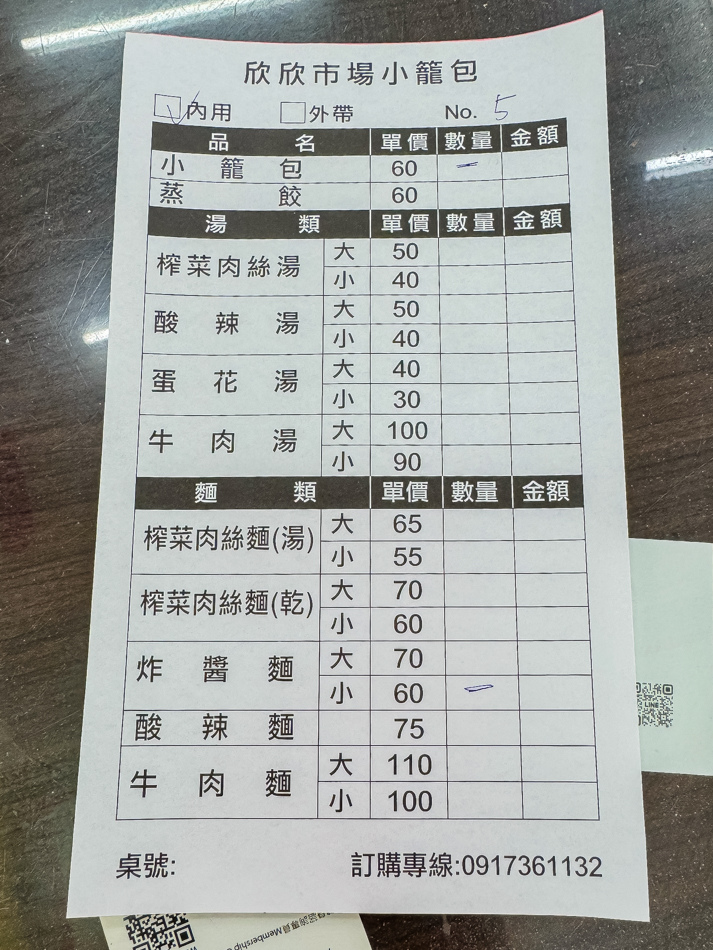 欣欣市場小籠包
內用 外帶 No. 5
品名 單價 數量 金額
小籠包 60 一
蒸餃 60
湯類 單價 數量 金額
榨菜肉絲湯 大 50
小 40
酸辣湯 大 50
小 40
蛋花湯 大 40
小 30
牛肉湯 大 100
小 90
麵類 單價 數量 金額
榨菜肉絲麵(湯) 大 65
小 55
榨菜肉絲麵(乾) 大 70
小 60
炸醬麵 大 70
小 60 一
酸辣麵 75
牛肉麵 大 110
小 100
桌號: 訂購專線:0917361132
LINE